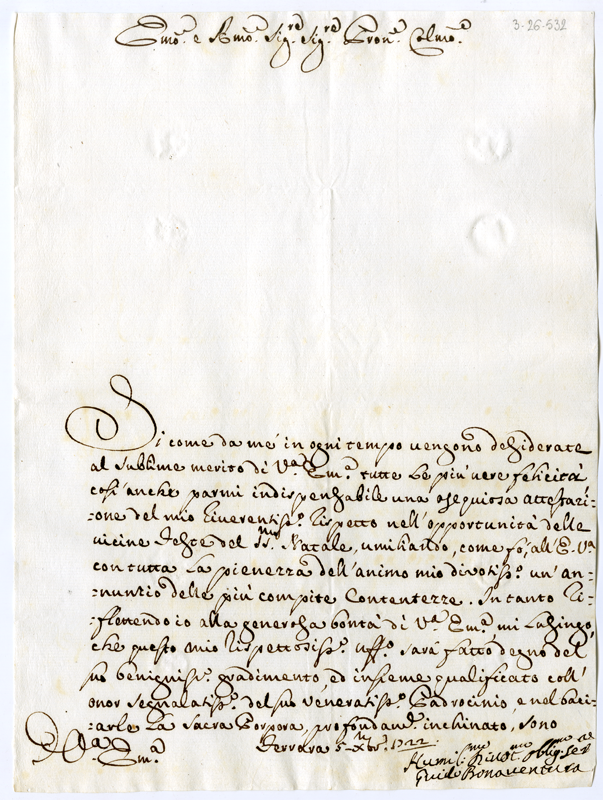 3-26-532
Em.º e Rmo. Sig.re Sig.re Pron.e Colmo.
Si come da me in ogni tempo vengono desiderate
al sublime merito di V.a Em.a tutte le più vere felicità
così anche parmi indispensabile una ossequiosa attestazi-
-one del mio riverentiss.º rispetto nell'opportunità delle
vicine Feste del SS.mo Natale, umiliando, come fò, all'E. V.a
con tutta la pienezza dell'animo mio divotiss.º un'an-
-nunzio delle più compite Contentezze. In tanto ri-
-flettendo io alla generosa bontà di V.a Em.a mi lusingo,
che questo mio rispettosiss.º uff.º sarà fatto degno del
suo benigniss.º gradimento, ed insieme qualificato coll'
onor segnalatiss.º del suo veneratiss.º Padrocinio, e nel baci-
-arle la Sacra Porpora, profondam.e inchinato, sono
D. V.a Em.a
Ferrara 5 Xbr. 1722.
Humil.mo Divot.mo Oblig.mo Ser.re
Guido Bonaventura